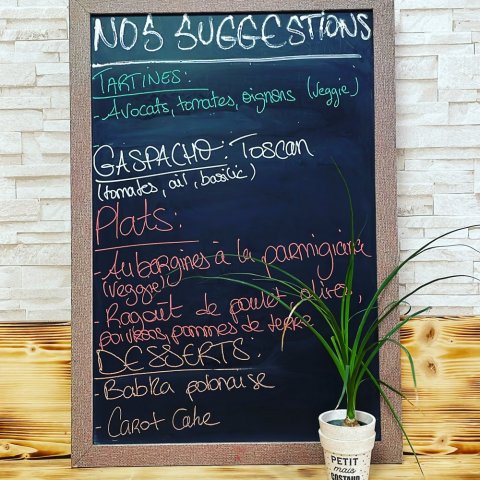 NOS SUGGESTIONS
TARTINES:
- Avocats, tomates, oignons (Veggie)
GASPACHO: Toscan
(tomates, ail, basilic)
Plats:
- Aubergines à la parmigiana
(Veggie)
- Ragoût de poulet, olives,
poivrons, pommes de terre
DESSERTS:
- Babka polonaise
- Carot Cake
PETIT
mais
COSTAUD